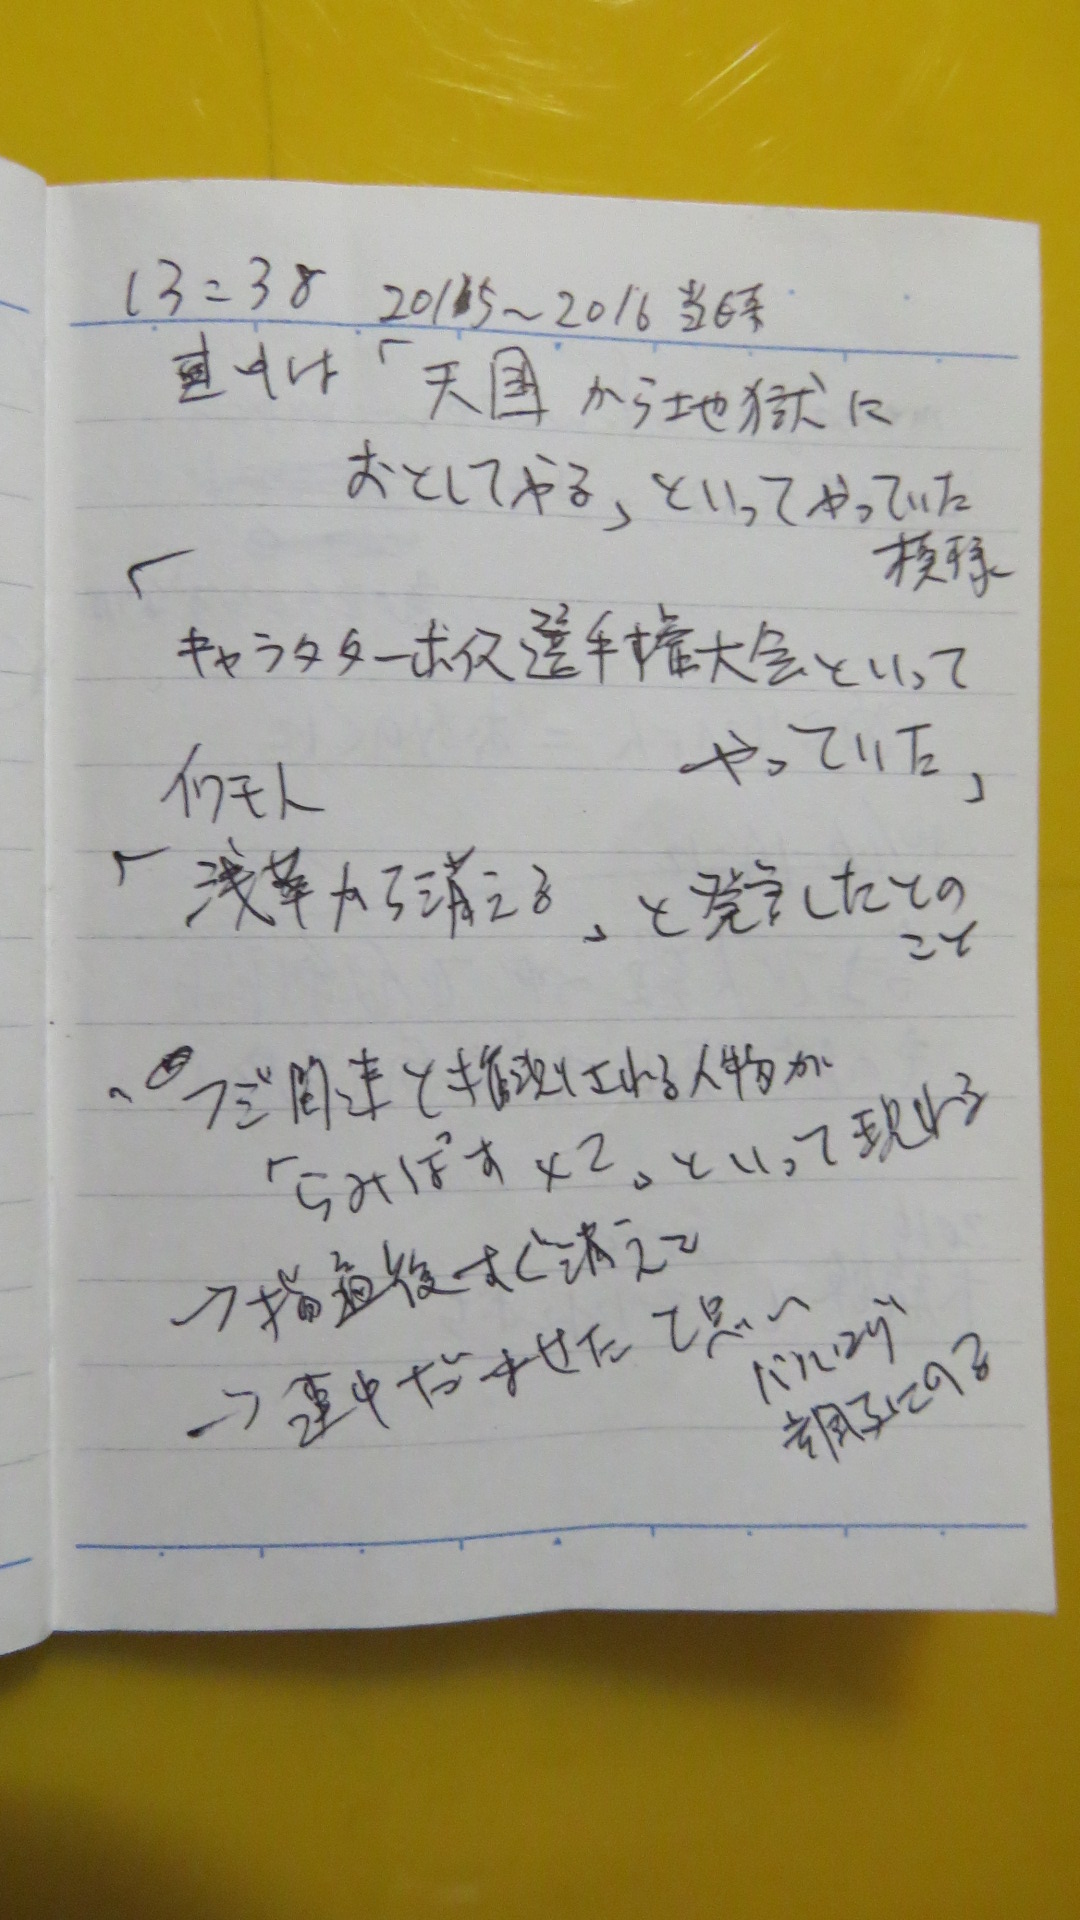 13=38 2015～2016 当時
連中は「天国から地獄に
おとしてやる」といってやっていた
模様
「
キャラクターボイス選手権大会といって
やっていた」
イワモト
「浅草から消える」と発言したとの
こと
フジ関連と推測される人物が
「らみぱす×2」といって現れる
→指摘後すぐ消えて
→連中だませたて思い
調子にのる